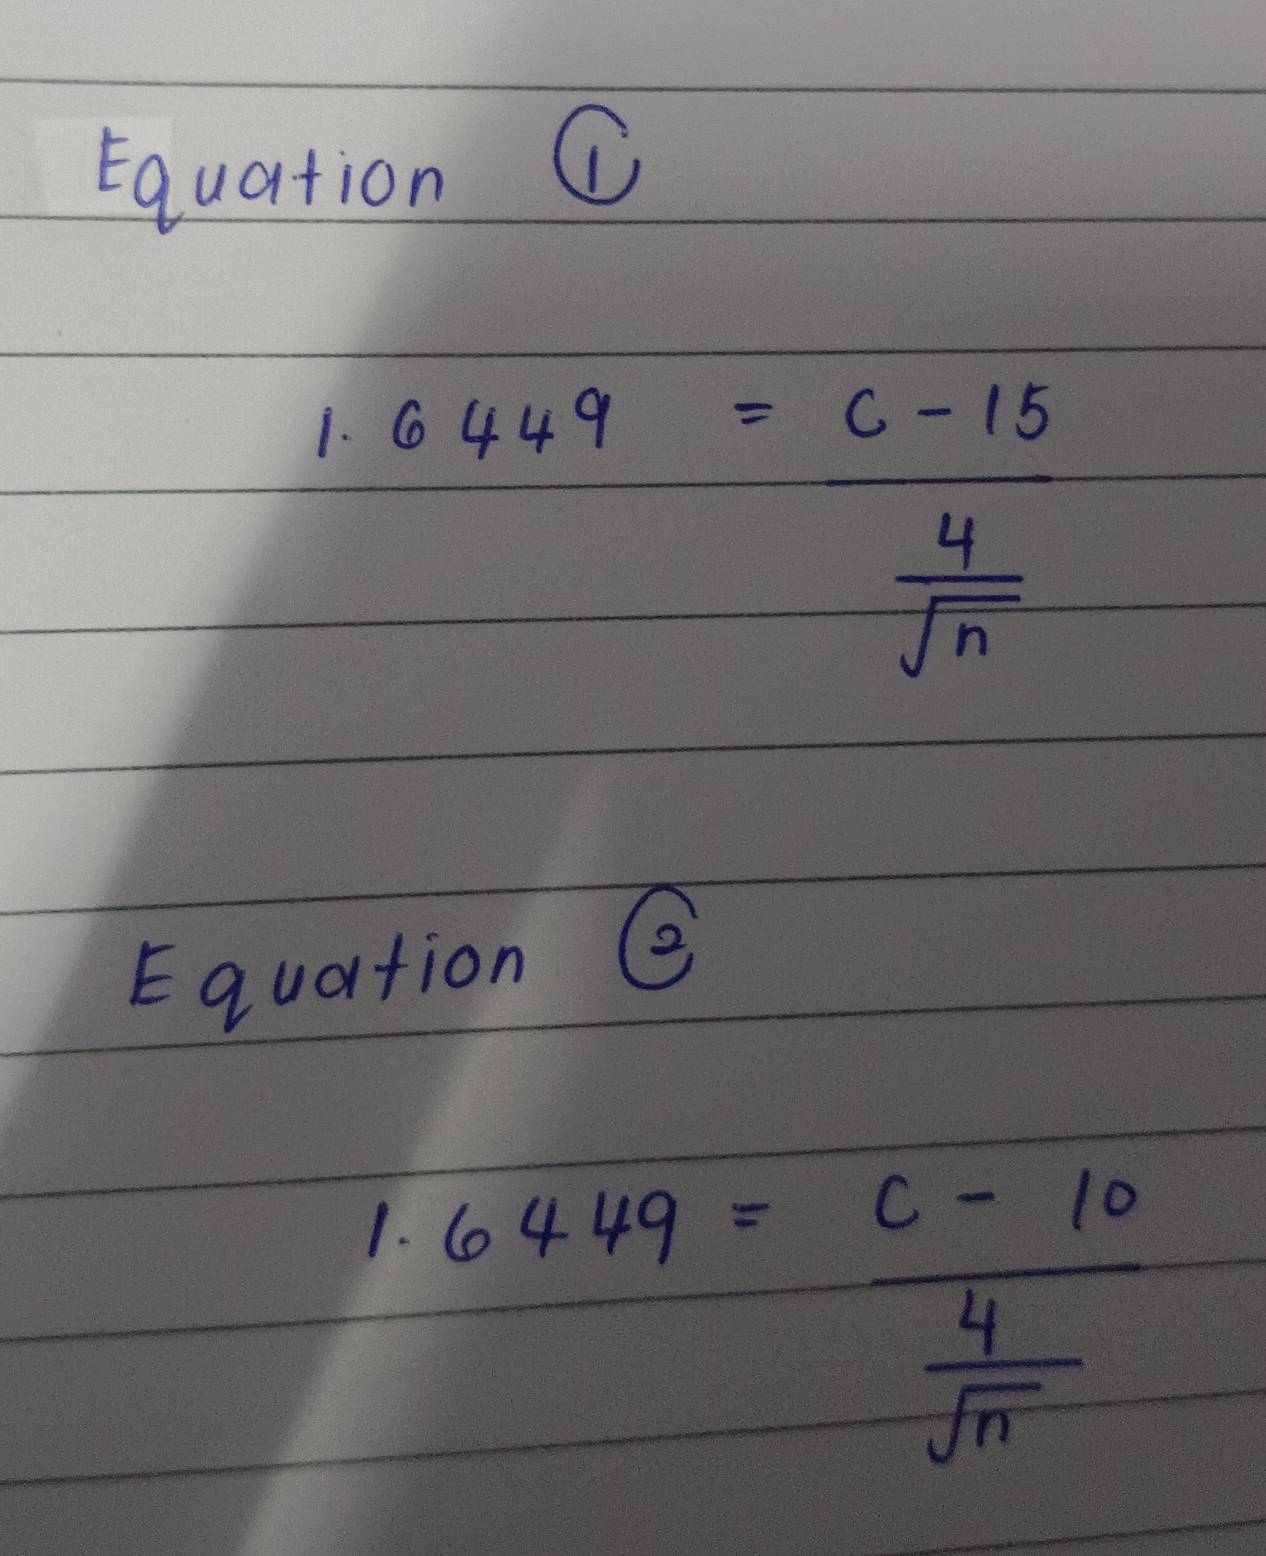 Equation ①
1.6449 = c - 15
4
√n
Equation ②
1.6449 = c - 10
4
√n